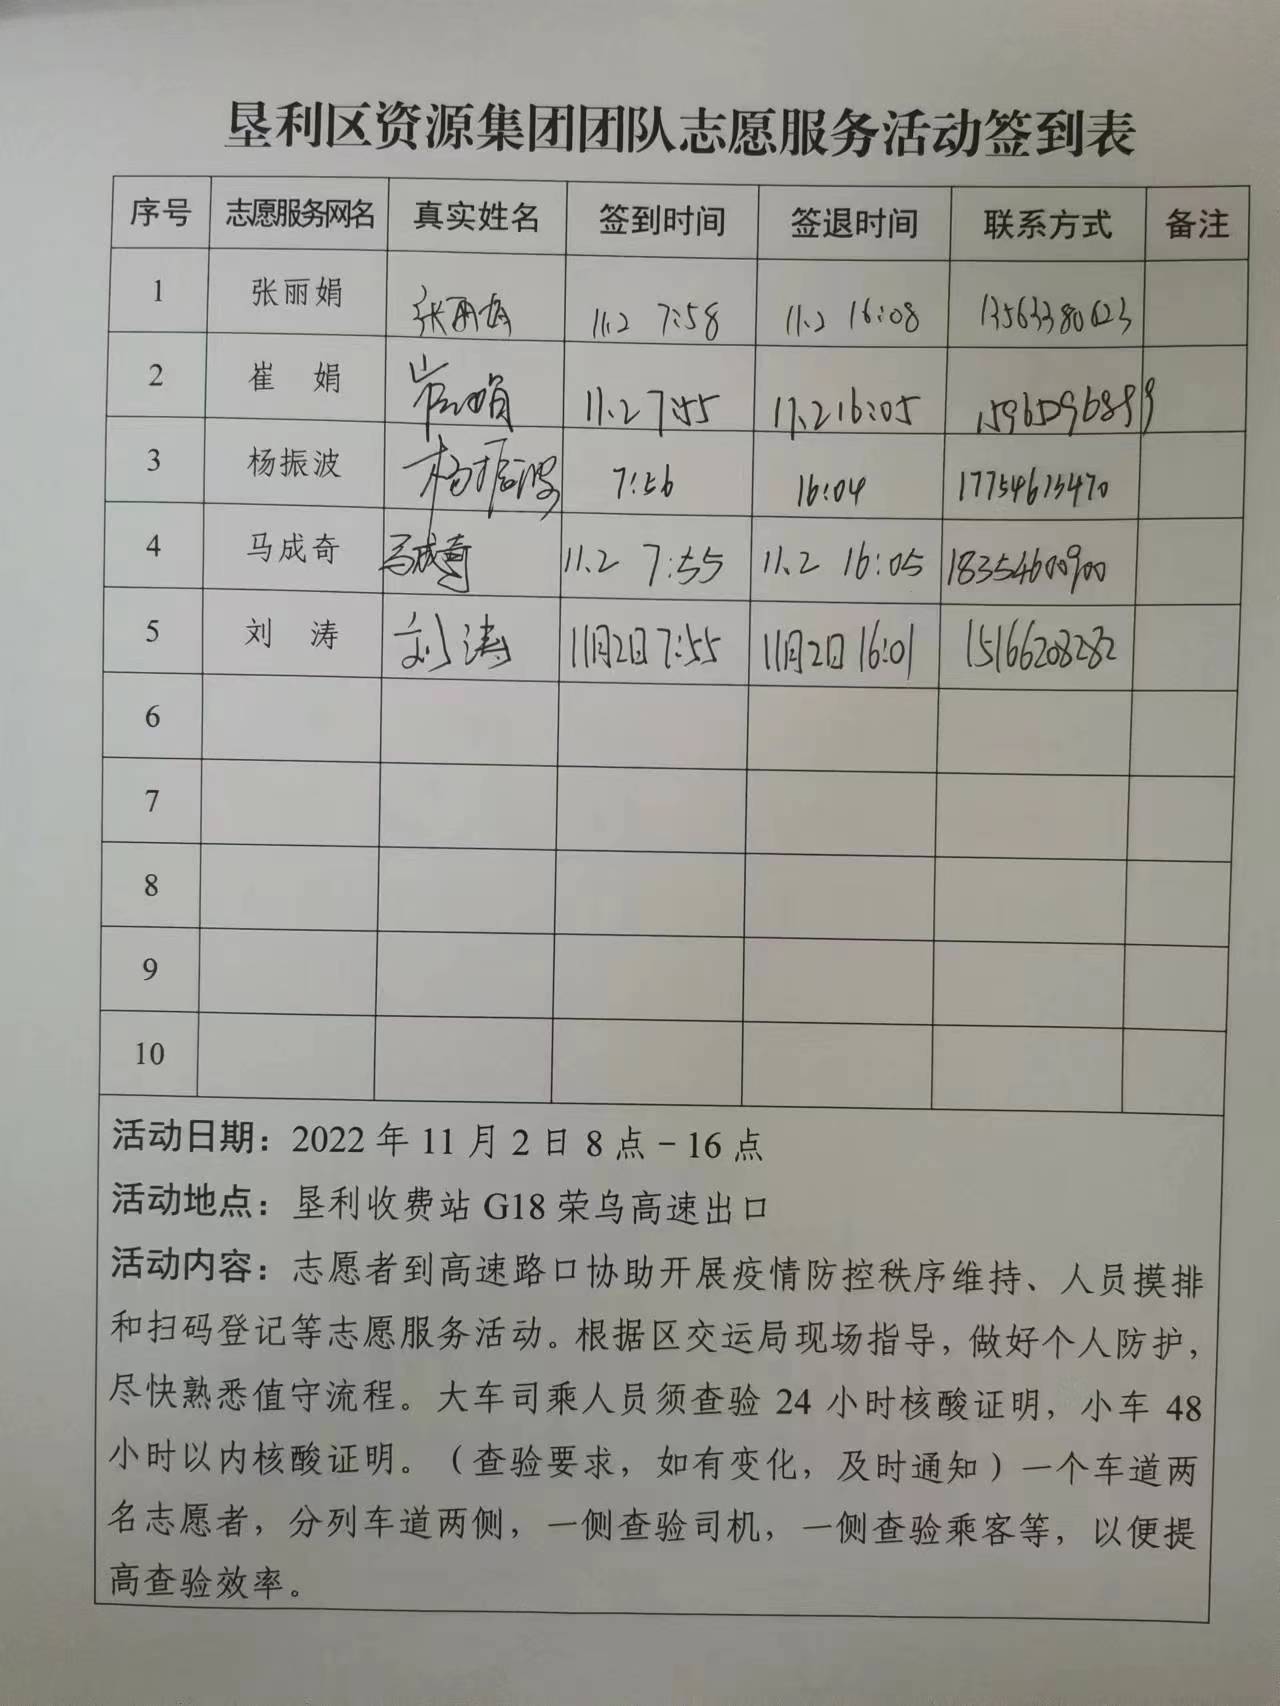 垦利区资源集团团队志愿服务活动签到表
序号 志愿服务网名 真实姓名 签到时间 签退时间 联系方式 备注
1 张丽娟 张丽娟 11.2 7:58 11.2 16:08 13563380623
2 崔 娟 崔娟 11.2 7:55 11.2 16:05
3 杨振波 杨振波 7:56 16:04 17754613470
4 马成奇 马成奇 11.2 7:55 11.2 16:05 18354600900
5 刘 涛 刘涛 11月2日 7:55 11月2日 16:01 15166208282
6
7
8
9
10
活动日期：2022 年 11 月 2 日 8 点－16 点
活动地点：垦利收费站 G18 荣乌高速出口
活动内容：志愿者到高速路口协助开展疫情防控秩序维持、人员摸排
和扫码登记等志愿服务活动。根据区交运局现场指导，做好个人防护，
尽快熟悉值守流程。大车司乘人员须查验 24 小时核酸证明，小车 48
小时以内核酸证明。（查验要求，如有变化，及时通知）一个车道两
名志愿者，分列车道两侧，一侧查验司机，一侧查验乘客等，以便提
高查验效率。